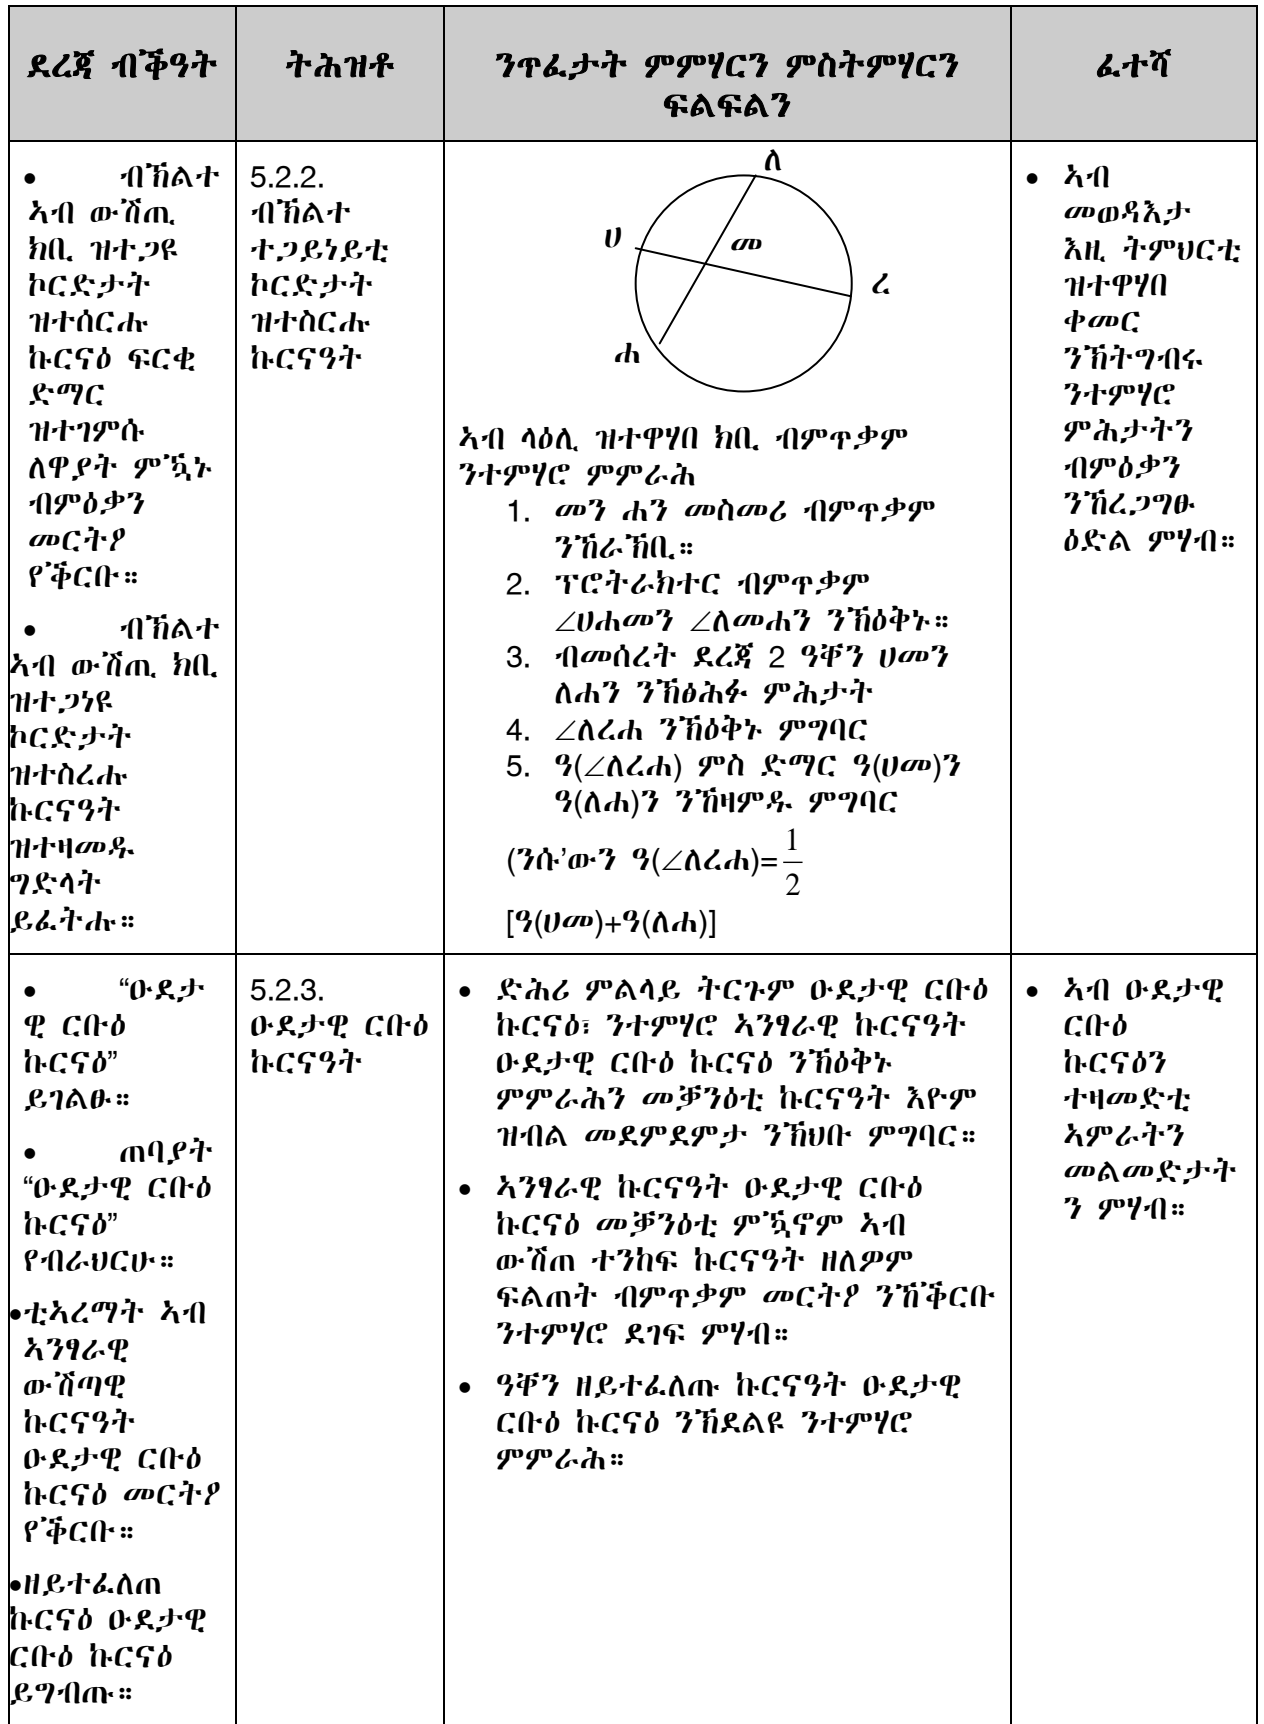 ደረጃ ብቕዓት
ትሕዝቶ
ንጥፈታት ምምሃርን ምስትምሃርን
ፍልፍልን
ፈተሻ
• ብኽልተ
ኣብ ውሽጢ
ክቢ ዝተጋዩ
ኮርድታት
ዝተሰርሑ
ኩርናዕ ፍርቂ
ድማር
ዝተገምሱ
ለዋያት ምዃኑ
ብምዕቃን
መርትዖ
የቕርቡ።
• ብኽልተ
ኣብ ውሽጢ ክቢ
ዝተጋነዩ
ኮርድታት
ዝተስረሑ
ኩርናዓት
ዝተዛመዱ
ግድላት
ይፈትሑ።
5.2.2.
ብኽልተ
ተጋይነይቲ
ኮርድታት
ዝተስርሑ
ኩርናዓት
ለ
ሀ
መ
ረ
ሐ
ኣብ ላዕሊ ዝተዋሃበ ክቢ ብምጥቃም
ንተምሃሮ ምምራሕ
1. መን ሐን መስመሪ ብምጥቃም
ንኸራኽቢ።
2. ፕሮትራክተር ብምጥቃም
∠ሀሐመን ∠ለመሐን ንኽዕቅኑ።
3. ብመሰረት ደረጃ 2 ዓቐን ሀመን
ለሐን ንኽፅሕፉ ምሕታት
4. ∠ለረሐ ንኽዕቅኑ ምግባር
5. ዓ(∠ለረሐ) ምስ ድማር ዓ(ሀመ)ን
ዓ(ለሐ)ን ንኸዛምዱ ምግባር
(ንሱ’ውን ዓ(∠ለረሐ)=1/2
[ዓ(ሀመ)+ዓ(ለሐ)]
• ኣብ
መወዳእታ
እዚ ትምህርቲ
ዝተዋሃበ
ቀመር
ንኽትግብሩ
ንተምሃሮ
ምሕታትን
ብምዕቃን
ንኸረጋግፁ
ዕድል ምሃብ።
• “ዑደታ
ዊ ርቡዕ
ኩርናዕ”
ይገልፁ።
• ጠባያት
“ዑደታዊ ርቡዕ
ኩርናዕ”
የብራህርሁ።
•ቲኣረማት ኣብ
ኣንፃራዊ
ውሽጣዊ
ኩርናዓት
ዑደታዊ ርቡዕ
ኩርናዕ መርትዖ
የቕርቡ።
•ዘይተፈለጠ
ኩርናዕ ዑደታዊ
ርቡዕ ኩርናዕ
ይግብጡ።
5.2.3.
ዑደታዊ ርቡዕ
ኩርናዓት
• ድሕሪ ምልላይ ትርጉም ዑደታዊ ርቡዕ
ኩርናዕ፣ ንተምሃሮ ኣንፃራዊ ኩርናዓት
ዑደታዊ ርቡዕ ኩርናዕ ንኽዕቅኑ
ምምራሕን መቓንዕቲ ኩርናዓት እዮም
ዝብል መደምደምታ ንኽህቡ ምግባር።
• ኣንፃራዊ ኩርናዓት ዑደታዊ ርቡዕ
ኩርናዕ መቓንዕቲ ምዃኖም ኣብ
ውሽጠ ተንከፍ ኩርናዓት ዘለዎም
ፍልጠት ብምጥቃም መርትዖ ንኸቕርቡ
ንተምሃሮ ደገፍ ምሃብ።
• ዓቐን ዘይተፈለጡ ኩርናዓት ዑደታዊ
ርቡዕ ኩርናዕ ንኽደልዩ ንተምሃሮ
ምምራሕ።
• ኣብ ዑደታዊ
ርቡዕ
ኩርናዕን
ተዛመድቲ
ኣምራትን
መልመድታት
ን ምሃብ።